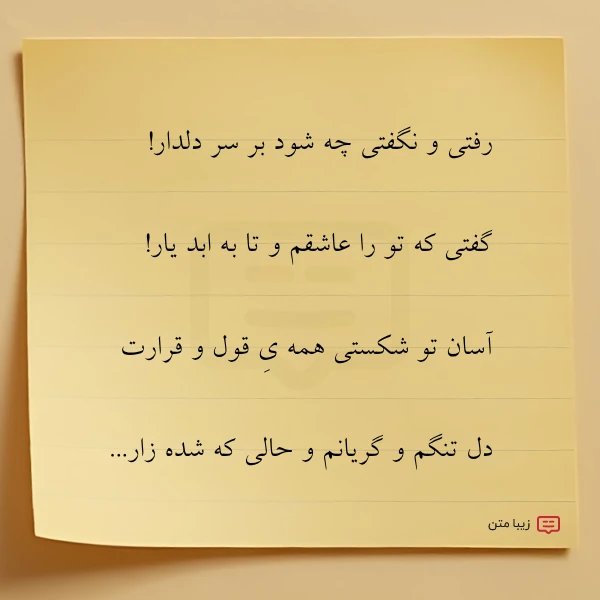 رفتی و نگفتی چه شود بر سر دلدار!
گفتی که تو را عاشقم و تا به ابد یار!
آسان تو شکستی همه یِ قول و قرارت
دل تنگم و گریانم و حالی که شده زار...
زیبا متن